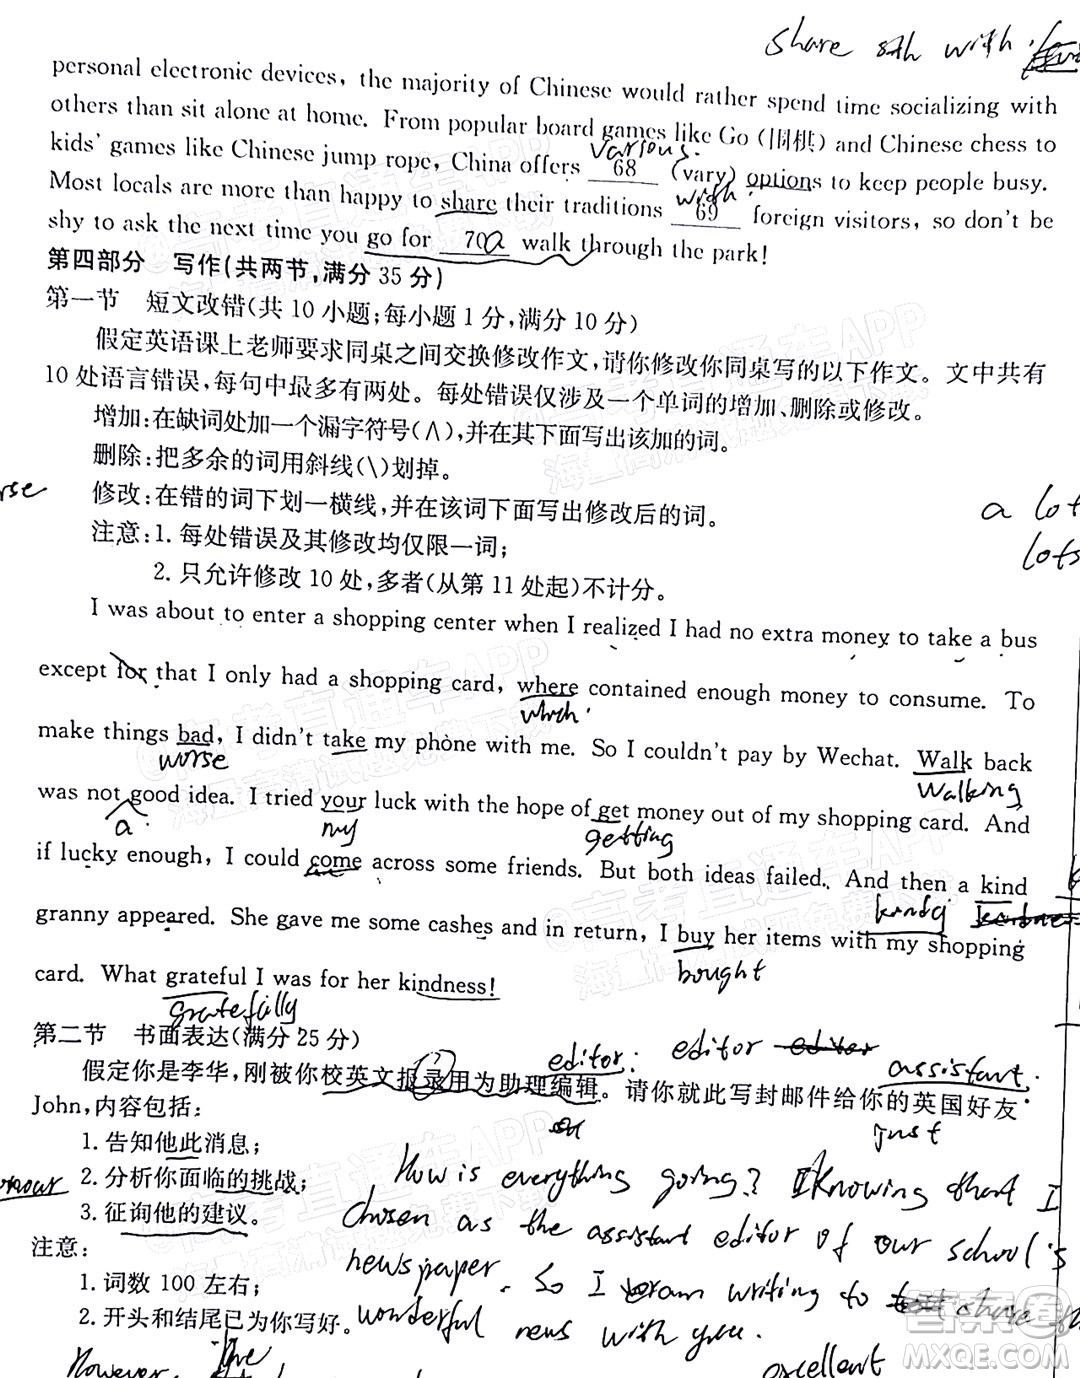 share sth with
personal electronic devices, the majority of Chinese would rather spend time socializing with
others than sit alone at home. From popular board games like Go (围棋) and Chinese chess to
various
kids' games like Chinese jump rope, China offers 68 (vary) options to keep people busy.
with
Most locals are more than happy to share their traditions 69 foreign visitors, so don't be
shy to ask the next time you go for 70 a walk through the park!
第四部分 写作(共两节,满分 35 分)
第一节 短文改错(共 10 小题;每小题 1 分,满分 10 分)
假定英语课上老师要求同桌之间交换修改作文,请你修改你同桌写的以下作文。文中共有
10 处语言错误,每句中最多有两处。每处错误仅涉及一个单词的增加、删除或修改。
增加:在缺词处加一个漏字符号(∧),并在其下面写出该加的词。
删除:把多余的词用斜线(\)划掉。
修改:在错的词下划一横线,并在该词下面写出修改后的词。
a lot
注意:1. 每处错误及其修改均仅限一词;
lots
2. 只允许修改 10 处,多者(从第 11 处起)不计分。
I was about to enter a shopping center when I realized I had no extra money to take a bus
except for that I only had a shopping card, where contained enough money to consume. To
which
make things bad, I didn't take my phone with me. So I couldn't pay by Wechat. Walk back
worse walking
was not good idea. I tried your luck with the hope of get money out of my shopping card. And
a my getting
if lucky enough, I could come across some friends. But both ideas failed. And then a kind
granny appeared. She gave me some cashes and in return, I buy her items with my shopping
bought
card. What grateful I was for her kindness!
gratefully
第二节 书面表达(满分 25 分)
editor: editor editor
假定你是李华,刚被你校英文报录用为助理编辑。请你就此写封邮件给你的英国好友
assistant
John,内容包括:
just
1. 告知他此消息;
2. 分析你面临的挑战;
3. 征询他的建议。
注意:
1. 词数 100 左右;
2. 开头和结尾已为你写好。
How is everything going? Knowing that I
chosen as the assistant editor of our school's
newspaper. So I am writing to share
wonderful news with you.
However, excellent
高考直通车APP
海量高清试题免费下载
答案圈
MXQE.COM